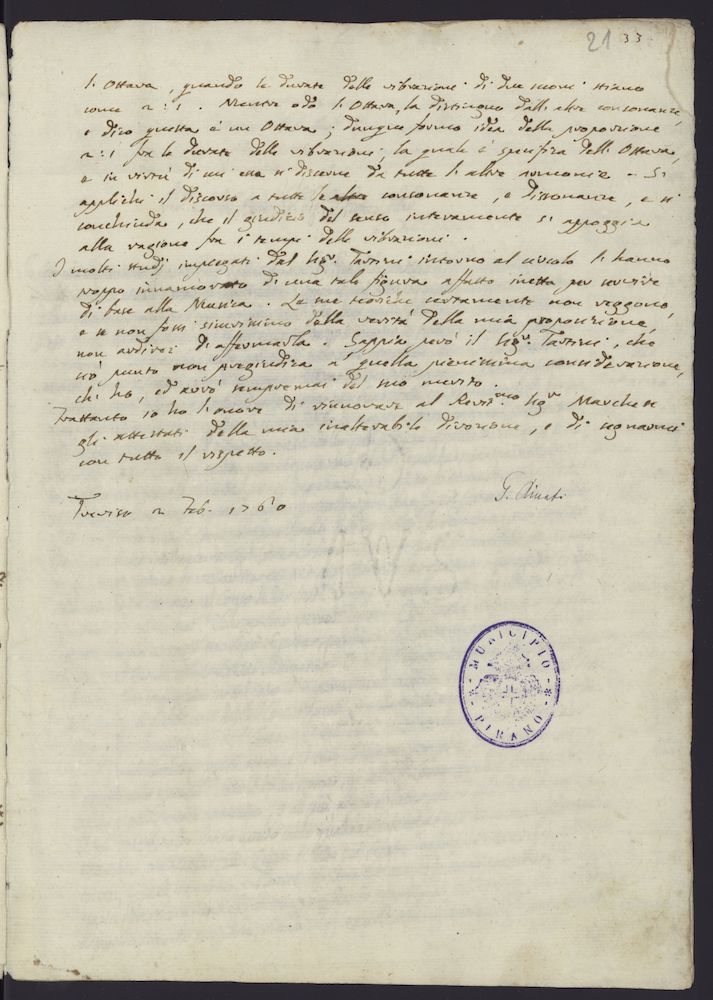 21 33
l'Ottava, quando le durate delle vibrazioni di due suoni stiano
come 2:1. Mentre odo l'Ottava, la distinguo dall'altre consonanze,
e dico questa è un Ottava; dunque formo idea della proporzione
2:1 fra le durate delle vibrazioni, la quale è specifica dell'Ottava,
e in virtù di cui essa si discerne da tutte l'altre armonie. Si
applichi il discorso a tutte le altre consonanze, e dissonanze, e si
conchiuda, che il giudizio del senso interamente si appoggia
alla ragione fra i tempi delle vibrazioni.
I molti studj impiegati dal Sigr. Tartini intorno al circolo l'hanno
troppo innamorato di una tale figura affatto inetta, per servire
di base alla Musica. Le sue teoriche certamente non reggono,
e se non fossi sicurissimo della verità della mia proposizione,
non ardirei di affermarla. Sappia però il Sigr. Tartini, che
ciò punto non pregiudica a quella pienissima considerazione,
ch'ho, ed avrò sempremai del suo merito.
Trattanto io ho l'onore di rinnovare al Revmo. Sigr. Marchese
gli attestati della mia inalterabile divozione, e di segnarmi
con tutto il rispetto.
Treviso 2 Feb. 1760
G. Riccati
MUNICIPIO
PIRANO